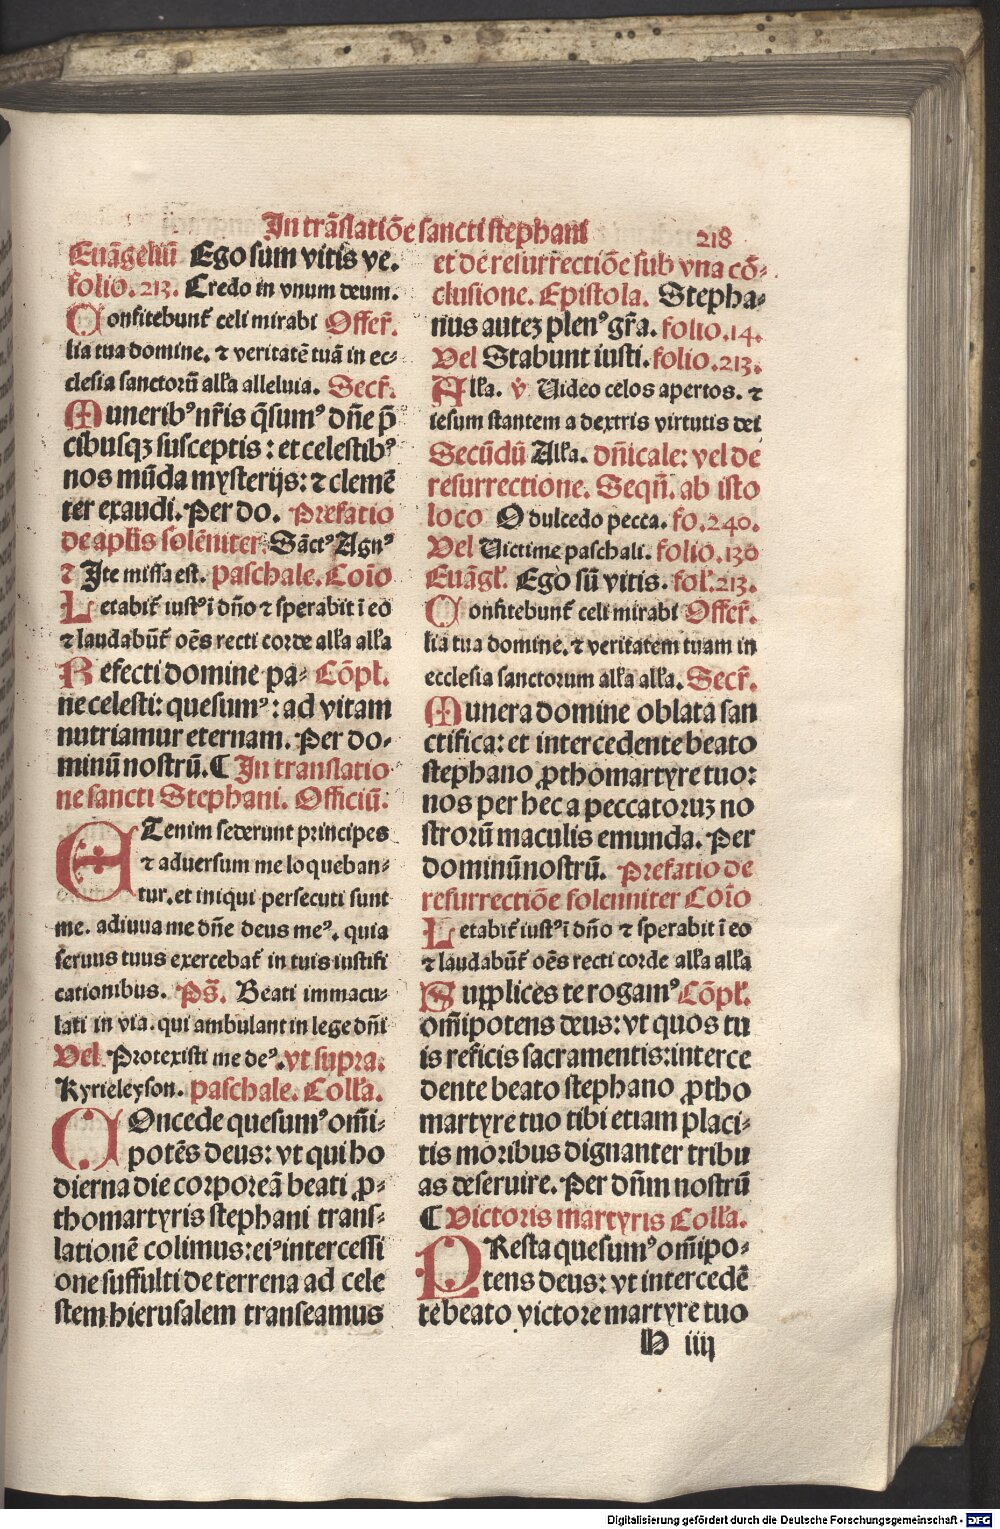 In trāslatiōe sancti stephani
218
Euāgeliū Ego sum vitis ve.
folio. 213. Credo in vnum deum.
Confitebunt᷑ celi mirabi Offer̄.
lia tua domine. ⁊ veritatē tuā in ec⸗
clesia sanctorū all'a alleluia. Secr̄.
Munerib⁹ nr̄is q̄sum⁹ dn̄e p̄
cibusqꝫ susceptis: et celestib⁹
nos mūda mysterijs: ⁊ clemē
ter exaudi. Per do. Prefatio
de apl'is solēniter. Sāct⁹ Agn⁹
⁊ Ite missa est. paschale. Coīo
Letabit᷑ iust⁹ ī dn̄o ⁊ sperabit ī eo
⁊ laudabūt᷑ oēs recti corde all'a all'a
Refecti domine pa⸗ Cōpl'.
ne celesti: quesum⁹: ad vitam
nutriamur eternam. Per do⸗
minū nostrū. ¶ In translatio
ne sancti Stephani. Officiū.
ETenim sederunt principes
⁊ aduersum me loqueban⸗
tur. et iniqui persecuti sunt
me. adiuua me dn̄e deus me⁹. quia
seruus tuus exercebat᷑ in tuis iustifi
cationibus. Ps̄. Beati immacu⸗
lati in via. qui ambulant in lege dn̄i
Vel Protexisti me de⁹. vt supra.
Kyrieleyson. paschale. Coll'a.
COncede quesum⁹ om̄i⸗
potēs deus: vt qui ho
dierna die corporeā beati ꝓ⸗
thomartyris stephani trans⸗
lationē colimus: ei⁹ intercessi
one suffulti de terrena ad cele
stem hierusalem transeamus
et de resurrectiōe sub vna cō⸗
clusione. Epistola. Stepha⸗
nus autez plen⁹ gr̄a. folio. 14.
Vel Stabunt iusti. folio. 213.
All'a. ℣ Uideo celos apertos. ⁊
iesum stantem a dextris virtutis dei
Secūdū All'a. dn̄icale: vel de
resurrectione. Seqn̄. ab isto
loco O dulcedo pecca. fo. 240.
Vel Uictime paschali. folio. 130
Euāgl'. Ego sū vitis. fol'. 213.
Confitebunt᷑ celi mirabi Offer̄.
lia tua domine. ⁊ veritatem tuam in
ecclesia sanctorum all'a all'a. Secr̄.
Munera domine oblata san
ctifica: et intercedente beato
stephano ꝓthomartyre tuo:
nos per hec a peccatoruz no
strorū maculis emunda. Per
dominū nostrū. Prefatio de
resurrectiōe solenniter Coīo
Letabit᷑ iust⁹ ī dn̄o ⁊ sperabit ī eo
⁊ laudabūt᷑ oēs recti corde all'a all'a
Supplices te rogam⁹ Cōpl'.
om̄ipotens deus: vt quos tu
is reficis sacramentis: interce
dente beato stephano ꝓtho
martyre tuo tibi etiam placi⸗
tis moribus dignanter tribu
as deseruire. Per dn̄m nostrū
¶ Victoris martyris Coll'a.
PResta quesum⁹ om̄ipo⸗
tens deus: vt intercedē
te beato victore martyre tuo
H iiij
Digitalisierung gefördert durch die Deutsche Forschungsgemeinschaft - DFG